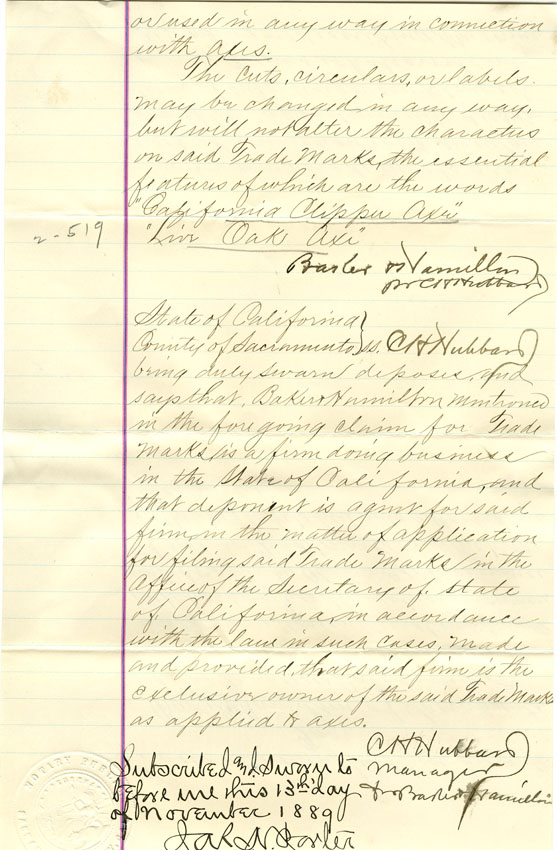 or used in any way in connection
with axes.
The cuts, circulars, or labels
may be changed in any way,
but will not alter the characters
on said Trade Marks, the essential
features of which are the words
"California Clipper Axe"
"Live Oak Axe"
2-519
Baker & Hamilton
pr C H Hubbard
State of California }
County of Sacramento } ss. C H Hubbard
being duly sworn deposes and
says that Baker & Hamilton mentioned
in the foregoing claim for Trade
Marks, is a firm doing business
in the State of California, and
that deponent is agent for said
firm, in the matter of application
for filing said Trade Marks in the
Office of the Secretary of State
of California, in accordance
with the law in such cases, made
and provided, that said firm is the
exclusive owner of the said Trade Marks
as applied to axes.
C H Hubbard
Manager
for Baker & Hamilton
Subscribed and Sworn to
before me this 13th day
of November 1889
Porter
NOTARY